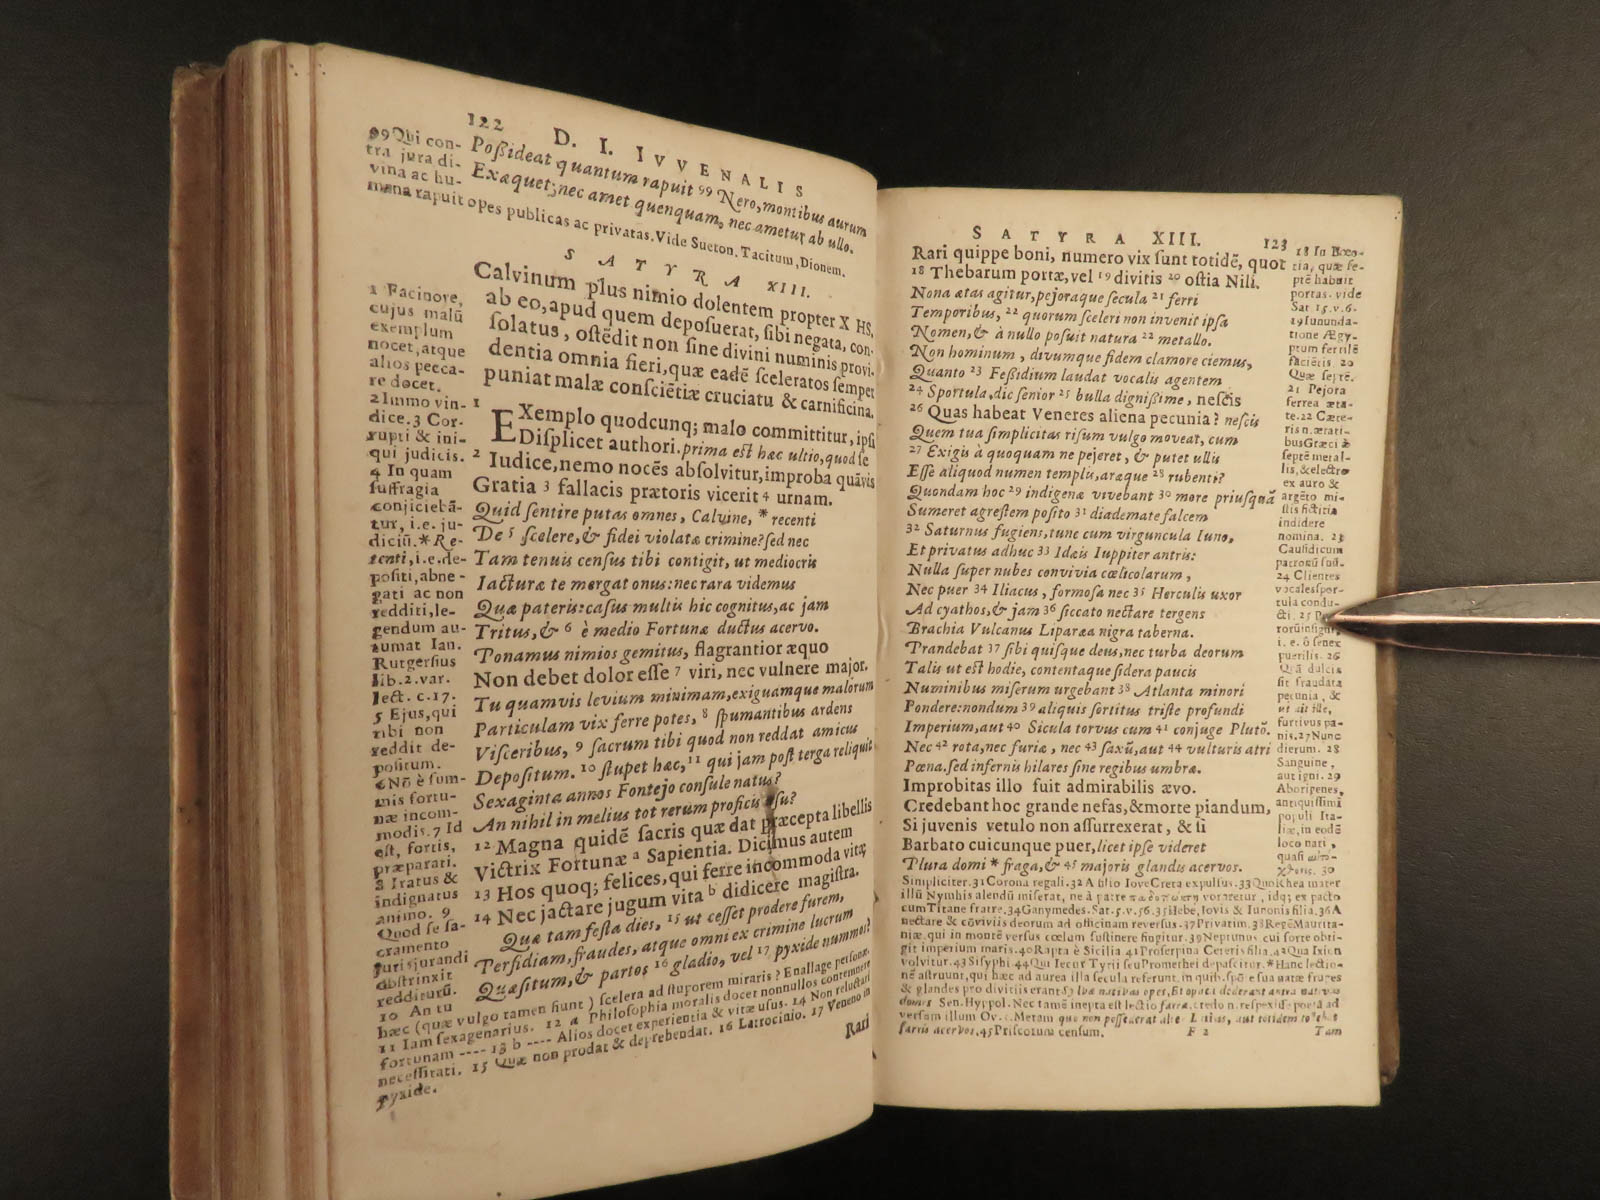 122 D. I. IVVENALIS
Poßideat quantum rapuit 99 Nero, montibus aurum
Exæquet; nec amet quenquam, nec ametur ab ullo.
99 Qui con-
tra jura di-
vina ac hu-
mana rapuit opes publicas ac privatas. Vide Sueton. Tacitum, Dionem.
SATYRA XIII.
Calvinum plus nimio dolentem propter X HS,
ab eo, apud quem deposuerat, sibi negata, con-
solatus, ostēdit non sine divini numinis provi-
dentia omnia fieri, quæ eadē sceleratos semper
puniat malæ consciētiæ cruciatu & carnificina.
1 EXemplo quodcunq; malo committitur, ipsi
Displicet authori. prima est hæc ultio, quod se
2 Iudice, nemo nocēs absolvitur, improba quāvis
Gratia 3 fallacis prætoris vicerit 4 urnam.
Quid sentire putas omnes, Calvine, * recenti
De 5 scelere, & fidei violatæ crimine? sed nec
Tam tenuis census tibi contigit, ut mediocris
Iacturæ te mergat onus: nec rara videmus
Quæ pateris: casus multis hic cognitus, ac jam
Tritus, & 6 è medio Fortunæ ductus acervo.
Ponamus nimios gemitus, flagrantior æquo
Non debet dolor esse 7 viri, nec vulnere major.
Tu quamvis levium minimam, exiguamque malorum
Particulam vix ferre potes, 8 spumantibus ardens
Visceribus, 9 sacrum tibi quod non reddat amicus
Depositum. 10 stupet hæc, 11 qui jam post terga reliquit
Sexaginta annos Fontejo consule natus?
An nihil in melius tot rerum proficis usu?
12 Magna quidē sacris quæ dat præcepta libellis
Victrix Fortunæ a Sapientia. Dicimus autem
13 Hos quoq; felices, qui ferre incommoda vitæ
14 Nec jactare jugum vita b didicere magistra.
Quæ tam festa dies, 15 ut cesset prodere furem,
Perfidiam, fraudes, atque omni ex crimine lucrum
Quæsitum, & partos 16 gladio, vel 17 pyxide nummos?
1 Facinore,
cujus malū
exemplum
nocet, atque
alios pecca-
re docet.
2 Immo vin-
dice. 3 Cor-
rupti & ini-
qui judicis.
4 In quam
suffragia
conjiciebā-
tur, i.e. ju-
diciū. * Re-
tenti, i.e. de-
positi, abne-
gati ac non
redditi, le-
gendum au-
tumat Ian.
Rutgersius
lib. 2. var.
lect. c. 17.
5 Ejus, qui
tibi non
reddit de-
positum.
6 Nō è sum-
mis fortu-
næ incom-
modis. 7 Id
est, fortis,
præparati.
8 Iratus &
indignatus
animo. 9
Quod se sa-
cramento
jurisjurandi
obstrinxit
redditurū.
10 An tu
hæc (quæ vulgo tamen fiunt) scelera ad stuporem miraris? Enallage personæ.
11 Iam sexagenarius. 12 a Philosophia moralis docet nonnullos contemnere
fortunam ---- 13 b ---- Alios docet experientia & vitæ usus. 14 Non reluctari
necessitati. 15 Quæ non prodat & deprehendat. 16 Latrocinio. 17 Veneno in
pyxide.
Rari
SATYRA XIII. 123
Rari quippe boni, numero vix sunt totidē, quot
18 Thebarum portæ, vel 19 divitis 20 ostia Nili.
Nona ætas agitur, pejoraque secula 21 ferri
Temporibus, 22 quorum sceleri non invenit ipsa
Nomen, & à nullo posuit natura 22 metallo.
Non hominum, divumque fidem clamore ciemus,
Quanto 23 Feßidium laudat vocalis agentem
24 Sportula, dic senior 25 bulla dignißime, nescis
26 Quas habeat Veneres aliena pecunia? nescis
Quem tua simplicitas risum vulgo moveat, cum
27 Exigis à quoquam ne pejeret, & putet ullis
Esse aliquod numen templis, aræque 28 rubenti?
Quondam hoc 29 indigenæ vivebant 30 more priusquā
Sumeret agrestem posito 31 diademate falcem
32 Saturnus fugiens, tunc cum virguncula Iuno,
Et privatus adhuc 33 Idæis Iuppiter antris:
Nulla super nubes convivia cœlicolarum,
Nec puer 34 Iliacus, formosa nec 35 Herculis uxor
Ad cyathos, & jam 36 siccato nectare tergens
Brachia Vulcanus Liparæa nigra taberna.
Prandebat 37 sibi quisque deus, nec turba deorum
Talis ut est hodie, contentaque sidera paucis
Numinibus miserum urgebant 38 Atlanta minori
Pondere: nondum 39 aliquis sortitus triste profundi
Imperium, aut 40 Sicula torvus cum 41 conjuge Plutō.
Nec 42 rota, nec furiæ, nec 43 saxū, aut 44 vulturis atri
Pœna. sed infernis hilares sine regibus umbræ.
Improbitas illo fuit admirabilis ævo.
Credebant hoc grande nefas, & morte piandum,
Si juvenis vetulo non assurrexerat, & si
Barbato cuicunque puer, licet ipse videret
Plura domi * fraga, & 45 majoris glandis acervos.
18 In Bœo-
tia, quæ se-
ptē habuit
portas. vide
Sat. 15. v. 6.
19 Inunda-
tione Ægy-
ptum fertilē
faciētis. 20
Quæ septē.
21 Pejora
ferrea æta-
te. 22 Cæte-
ris n. ætati-
bus Græci è
septē metal-
lis, & electro
ex auro &
argēto mi-
stis fictitia
indidere
nomina. 23
Causidicum
patronū suū.
24 Clientes
vocales spor-
tula condu-
cti. 25
i. e. ô senex
puerilis. 26
Quā dulcis
sit fraudata
pecunia, &
ut ait ille,
furtivus pa-
nis. 27 Nunc
dierum. 28
Sanguine,
aut igni. 29
Aborigenes,
antiquissimi
populi Ita-
liæ, in eodē
loco nati,
quasi
30
Simpliciter. 31 Corona regali. 32 A filio Iove Creta expulsus. 33 Quo Rhea mater
illū Nymhis alendū miserat, ne à patre voraretur, idq; ex pacto
cum Titane fratre. 34 Ganymedes. Sat. 5. v. 56. 35 Hebe, Iovis & Iunonis filia. 36 A
nectare & cōviviis deorum ad officinam reversus. 37 Privatim. 38 Regē Maurita-
niæ, qui in montē versus cœlum sustinere fingitur. 39 Neptunus cui sorte obti-
git imperium maris. 40 Rapta è Sicilia 41 Proserpina Cereris filia. 42 Qua Ixion
volvitur. 43 Sisyphi 44 Qui Iecur Tyrii seu Promethei depascitur. * Hanc lectio-
nē astruunt, qui hæc ad aurea illa secula referunt, in quib. spōte sua natæ fruges
& glandes pro divitiis erant
Sen. Hyppol. Nec tamē inepta est lectio farra, credo n. respexisse poëtā ad
versum illum Ov. 1. Metam
farris acervos. 45 Priscorum censum. F 2 Tam